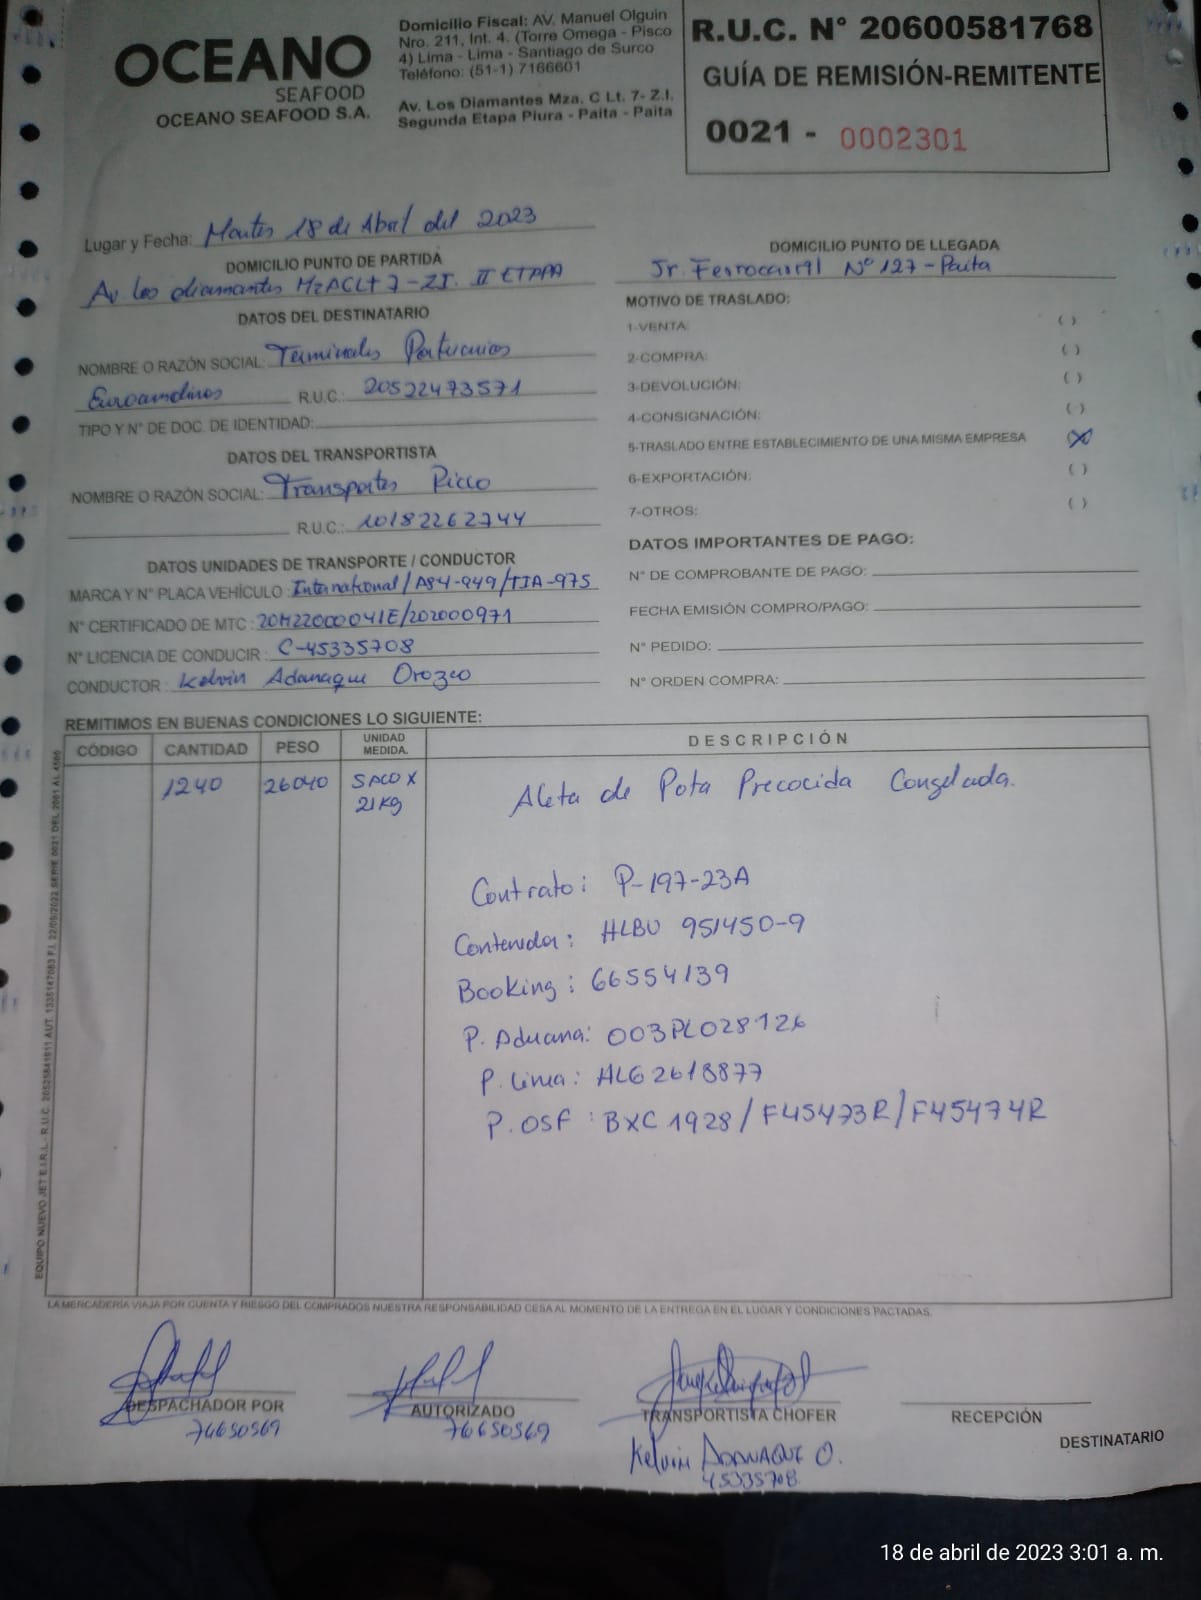 OCEANO
SEAFOOD
OCEANO SEAFOOD S.A.
Domicilio Fiscal: AV. Manuel Olguin
Nro. 211, Int. 4. (Torre Omega - Pisco
4) Lima - Lima - Santiago de Surco
Teléfono: (51-1) 7166601
Av. Los Diamantes Mza. C Lt. 7- Z.I.
Segunda Etapa Piura - Paita - Paita
R.U.C. N° 20600581768
GUÍA DE REMISIÓN-REMITENTE
0021 - 0002301
Lugar y Fecha: Martes 18 de Abril del 2023
DOMICILIO PUNTO DE PARTIDA
Av los diamantes MzACLt 7-ZI. II ETPPA
DOMICILIO PUNTO DE LLEGADA
Jr. Ferrocarril N° 127-Paita
DATOS DEL DESTINATARIO
NOMBRE O RAZÓN SOCIAL: Terminales Portuarios
Euroandinos R.U.C.: 20522473571
TIPO Y N° DE DOC. DE IDENTIDAD:
DATOS DEL TRANSPORTISTA
NOMBRE O RAZÓN SOCIAL: Transportes Ricco
R.U.C.: 10182262744
DATOS UNIDADES DE TRANSPORTE / CONDUCTOR
MARCA Y N° PLACA VEHÍCULO: International/A84-949/TIA-975
N° CERTIFICADO DE MTC: 20M22000041E/202000971
N° LICENCIA DE CONDUCIR: C-45335708
CONDUCTOR: Kelvin Adanaque Orozco
MOTIVO DE TRASLADO:
1-VENTA: ( )
2-COMPRA: ( )
3-DEVOLUCIÓN: ( )
4-CONSIGNACIÓN: ( )
5-TRASLADO ENTRE ESTABLECIMIENTO DE UNA MISMA EMPRESA (X)
6-EXPORTACIÓN: ( )
7-OTROS: ( )
DATOS IMPORTANTES DE PAGO:
N° DE COMPROBANTE DE PAGO:
FECHA EMISIÓN COMPRO/PAGO:
N° PEDIDO:
N° ORDEN COMPRA:
REMITIMOS EN BUENAS CONDICIONES LO SIGUIENTE:
CÓDIGO CANTIDAD PESO UNIDAD MEDIDA. DESCRIPCIÓN
1240 26040 SACO X 21Kg Aleta de Pota Precocida Congelada.
Contrato: P-197-23A
Contenedor: HLBU 951450-9
Booking: 66554139
P. Aduana: 003PL028126
P. Linea: HLG2618877
P. OSF: BXC 1928/F45473R/F45474R
LA MERCADERÍA VIAJA POR CUENTA Y RIESGO DEL COMPRADOS NUESTRA RESPONSABILIDAD CESA AL MOMENTO DE LA ENTREGA EN EL LUGAR Y CONDICIONES PACTADAS.
DESPACHADOR POR
76650569
AUTORIZADO
76650569
TRANSPORTISTA CHOFER
Kelvin ADANAQUE O.
45335708
RECEPCIÓN
DESTINATARIO
18 de abril de 2023 3:01 a. m.